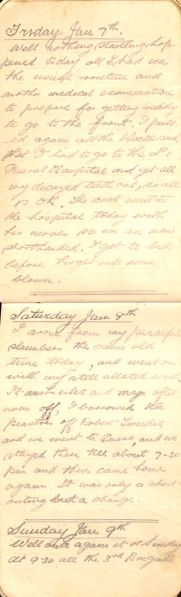 Friday Jan 7th.
Well nothing startling hap-
pened today all I had was
the usual routine and
another medical examination
to prepare for getting ready
to go to the front. I pass-
ed again all the
that I had to go to the
Hospital and get all
my decayed teeth out, so all
is OK. The cook went to
the hospital today with
his nerves so we are now
shorthanded. I got to bed
before lights out were
blown.
Saturday Jan 8th.
I arose from my peaceful
slumbers the same old
time today, and went on
with my allotted work.
It was and
noon off, I borrowed the
of Robert
and we went to Cairo, and we
stayed there till about 7-30
pm and then came home
again. It was only a short
outing but a change.
Sunday Jan 9th
Well once again it is Sunday
At 9.30 all the 3rd Brigade